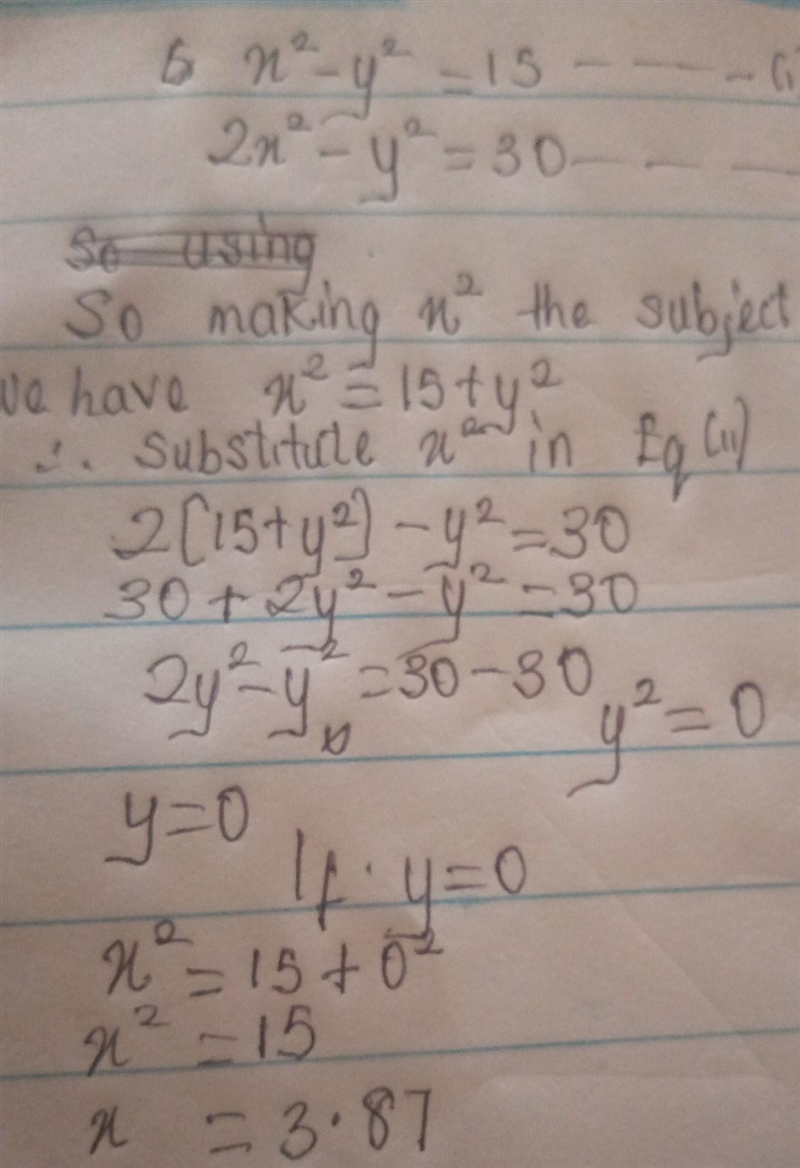 6 x² - y² = 15 - - - - (i
2x² - y² = 30 - - -
So using
So making x² the subject
we have x² = 15 + y²
∴ Substitute x² in Eq (ii)
2[15 + y²] - y² = 30
30 + 2y² - y² = 30
2y² - y² = 30 - 30
y² = 0
y = 0
If y = 0
x² = 15 + 0²
x² = 15
x = 3.87